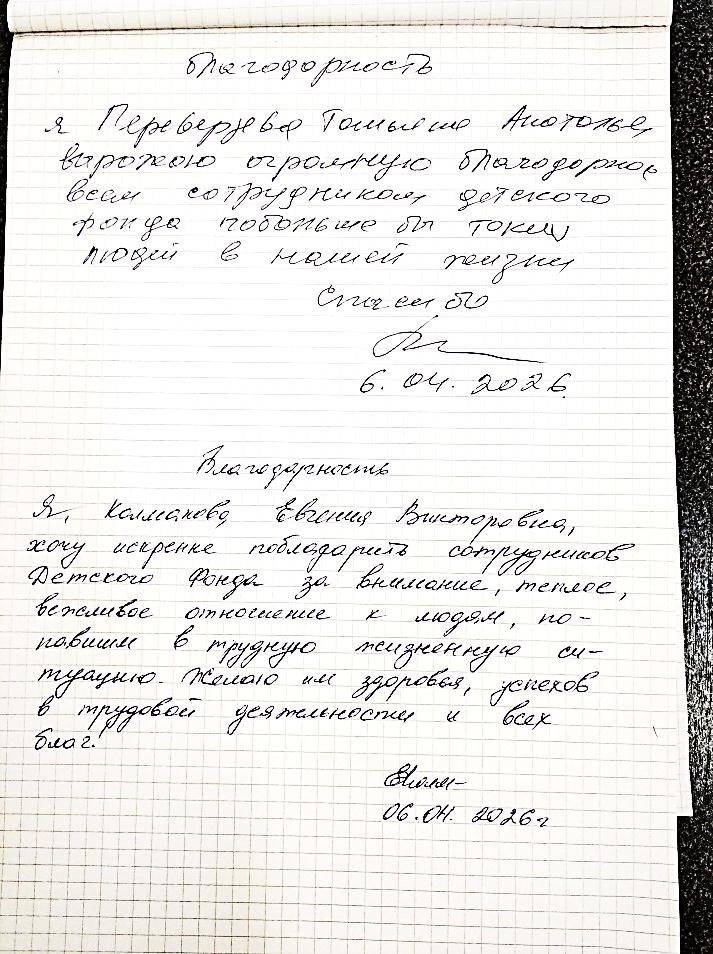 Благодарность
я Переверзева Татьяна Анатолье
выражаю огромную благодарнос
всем сотрудникам детского
фонда побольше бы таких
людей в нашей жизни
Спасибо
6. 04. 2026.
Благодарность
Я, Колмакова Евгения Викторовна,
хочу искренне побладарить сотрудников
Детского Фонда за внимание, теплое,
вежливое отношение к людям, по-
павшим в трудную жизненную си-
туацию. Желаю им здоровья, успехов
в трудовой деятельности и всех
благ!
06.04. 2026г